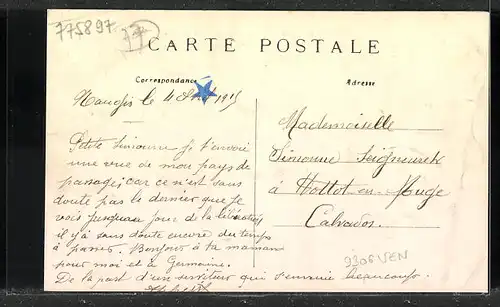 775897
CARTE POSTALE
Correspondance
Adresse
Nangis le 4 1915
Petite Simonne je t'envoie
une vue de mon pays de
passage, car ce n'est sans
doute pas le dernier que je
vois jusquau jour de la libération
il y a sans doute encore du temps
à passer. Bonjour à ta maman
pour moi et à Germaine.
De la part d'un serviteur qui s'ennuie beaucoup.
Mademoiselle
Simonne
à Hottot-en-Auge
Calvados.
9306 VEN